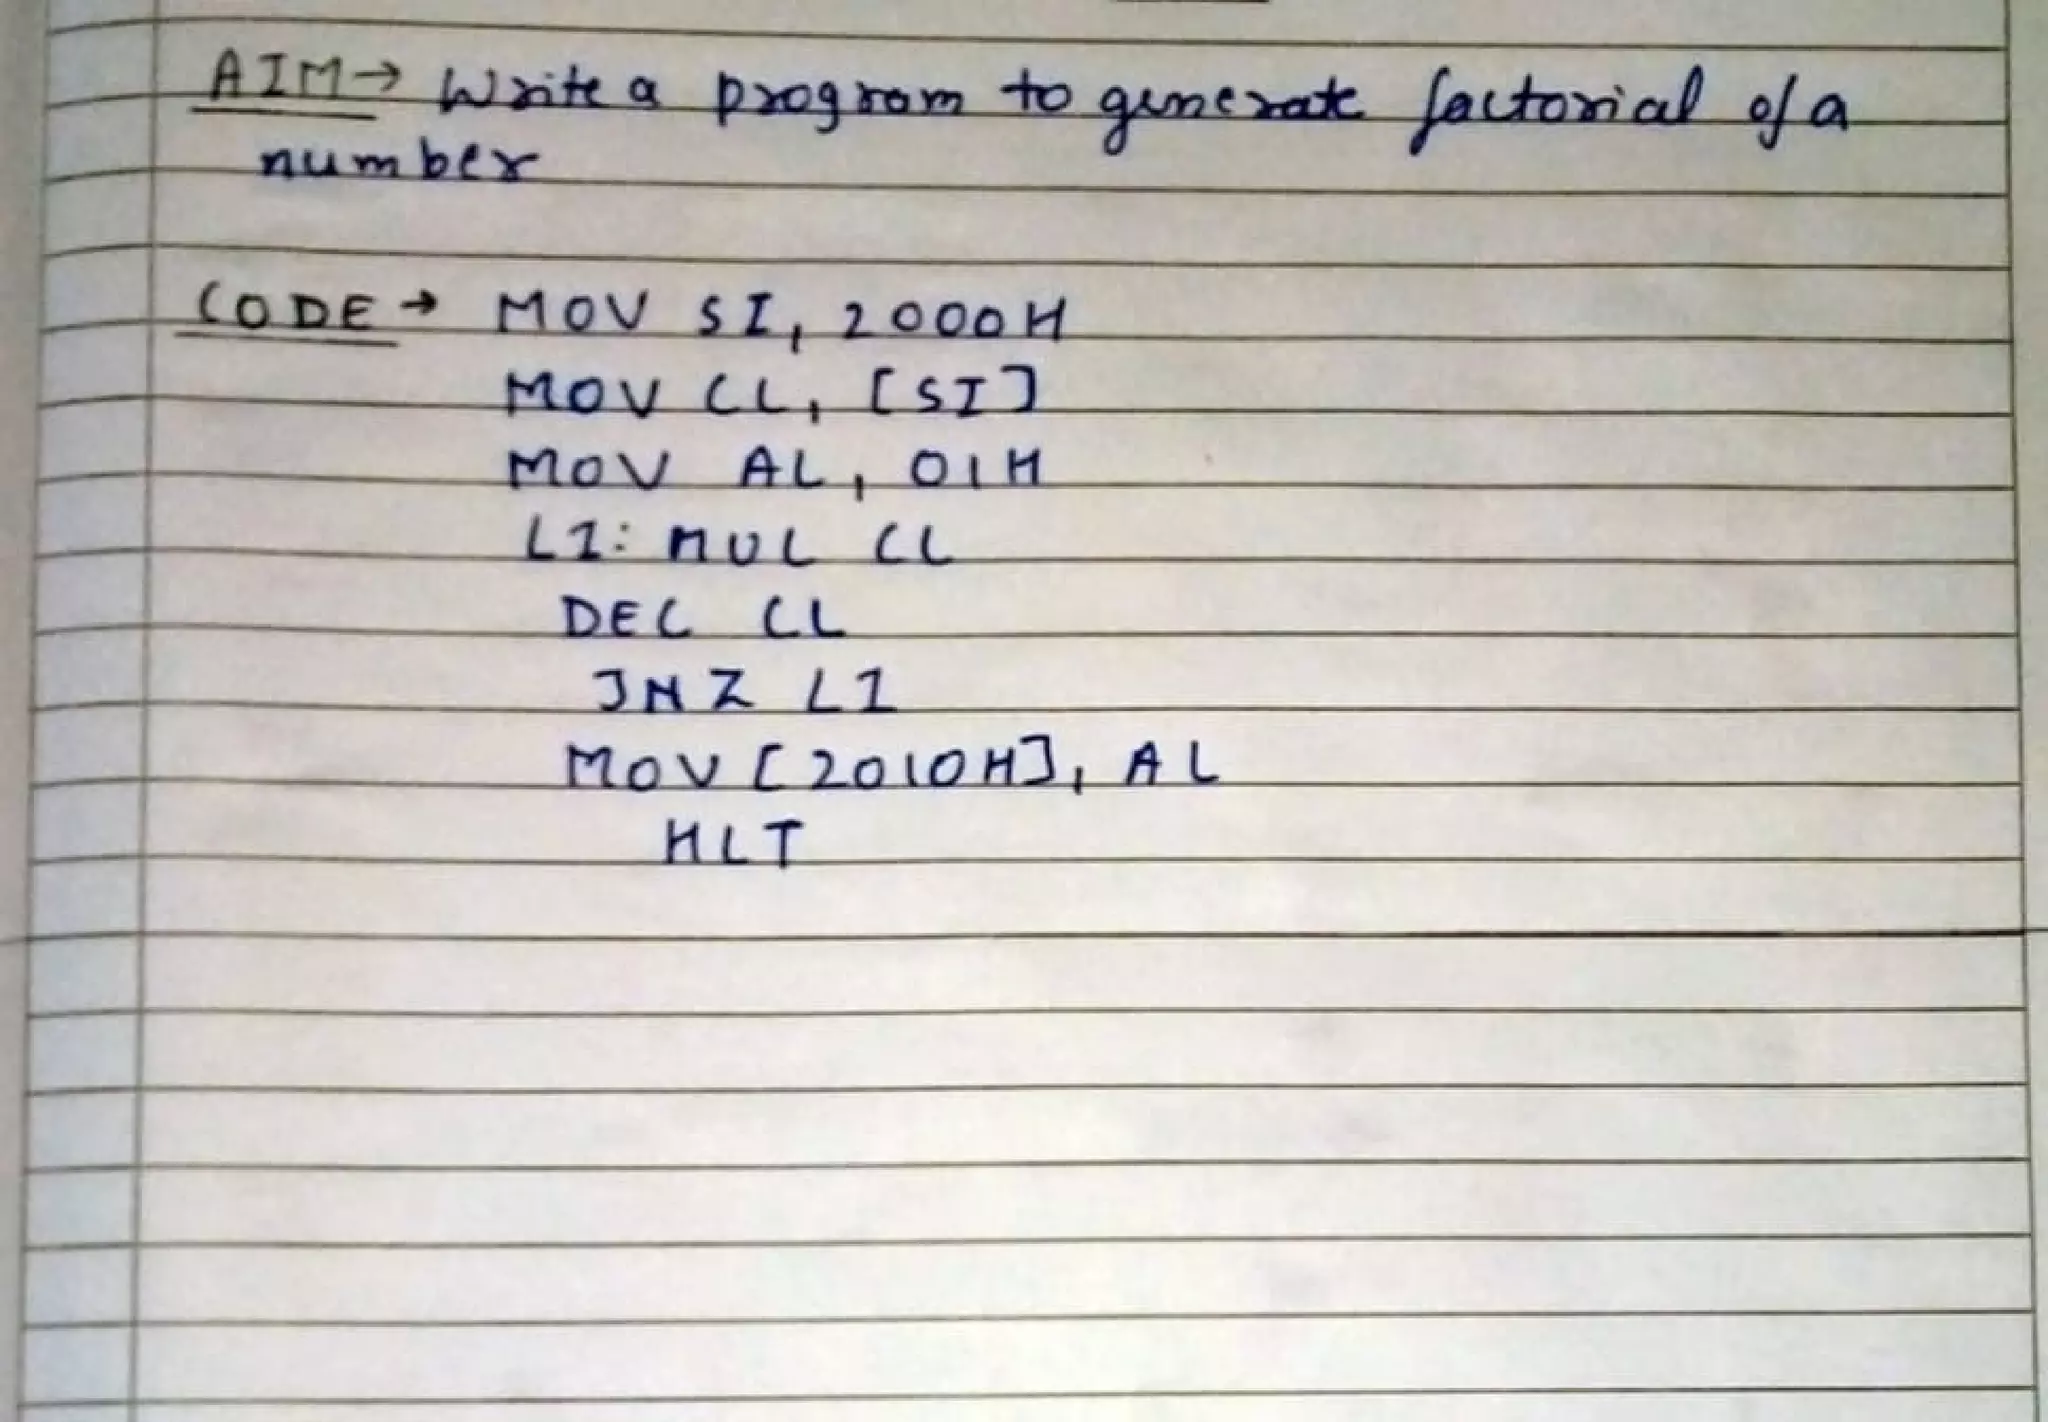 AIM→ Write a program to generate factorial of a
number
CODE→ MOV SI, 2000H
MOV CL, [SI]
MOV AL, 01H
L1: MUL CL
DEC CL
JNZ L1
MOV [2010H], AL
HLT